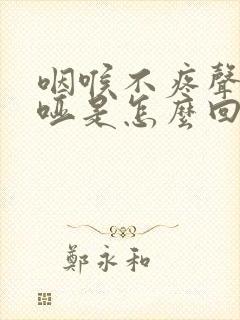 咽喉不疼聲
啞是怎麼回
鄭永和